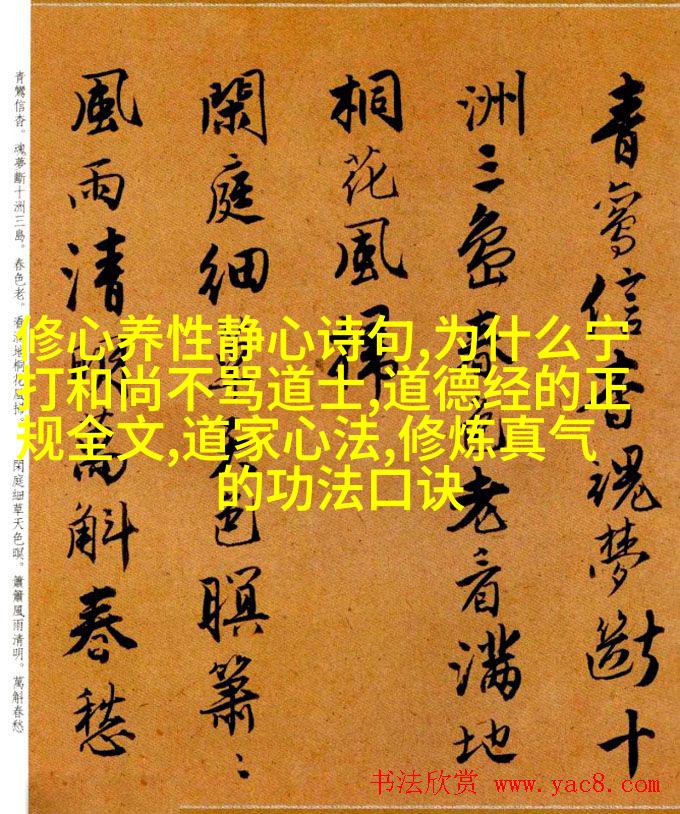 青鸞信杳魂夢斷十
洲三島春色老看滿地
桐花風掃
閑庭細草天色瞑簫〻
風雨清明萬斛春愁
青鸞信杳。魂夢斷十洲三島。春色老。看滿地桐花風掃。閑庭細草天色暝。簫簫風雨清明。萬斛春愁
修心养性静心诗句,为什么宁
打和尚不骂道士,道德经的正
规全文,道家心法,修炼真气
的功法口诀
书法欣赏 www.yac8.com